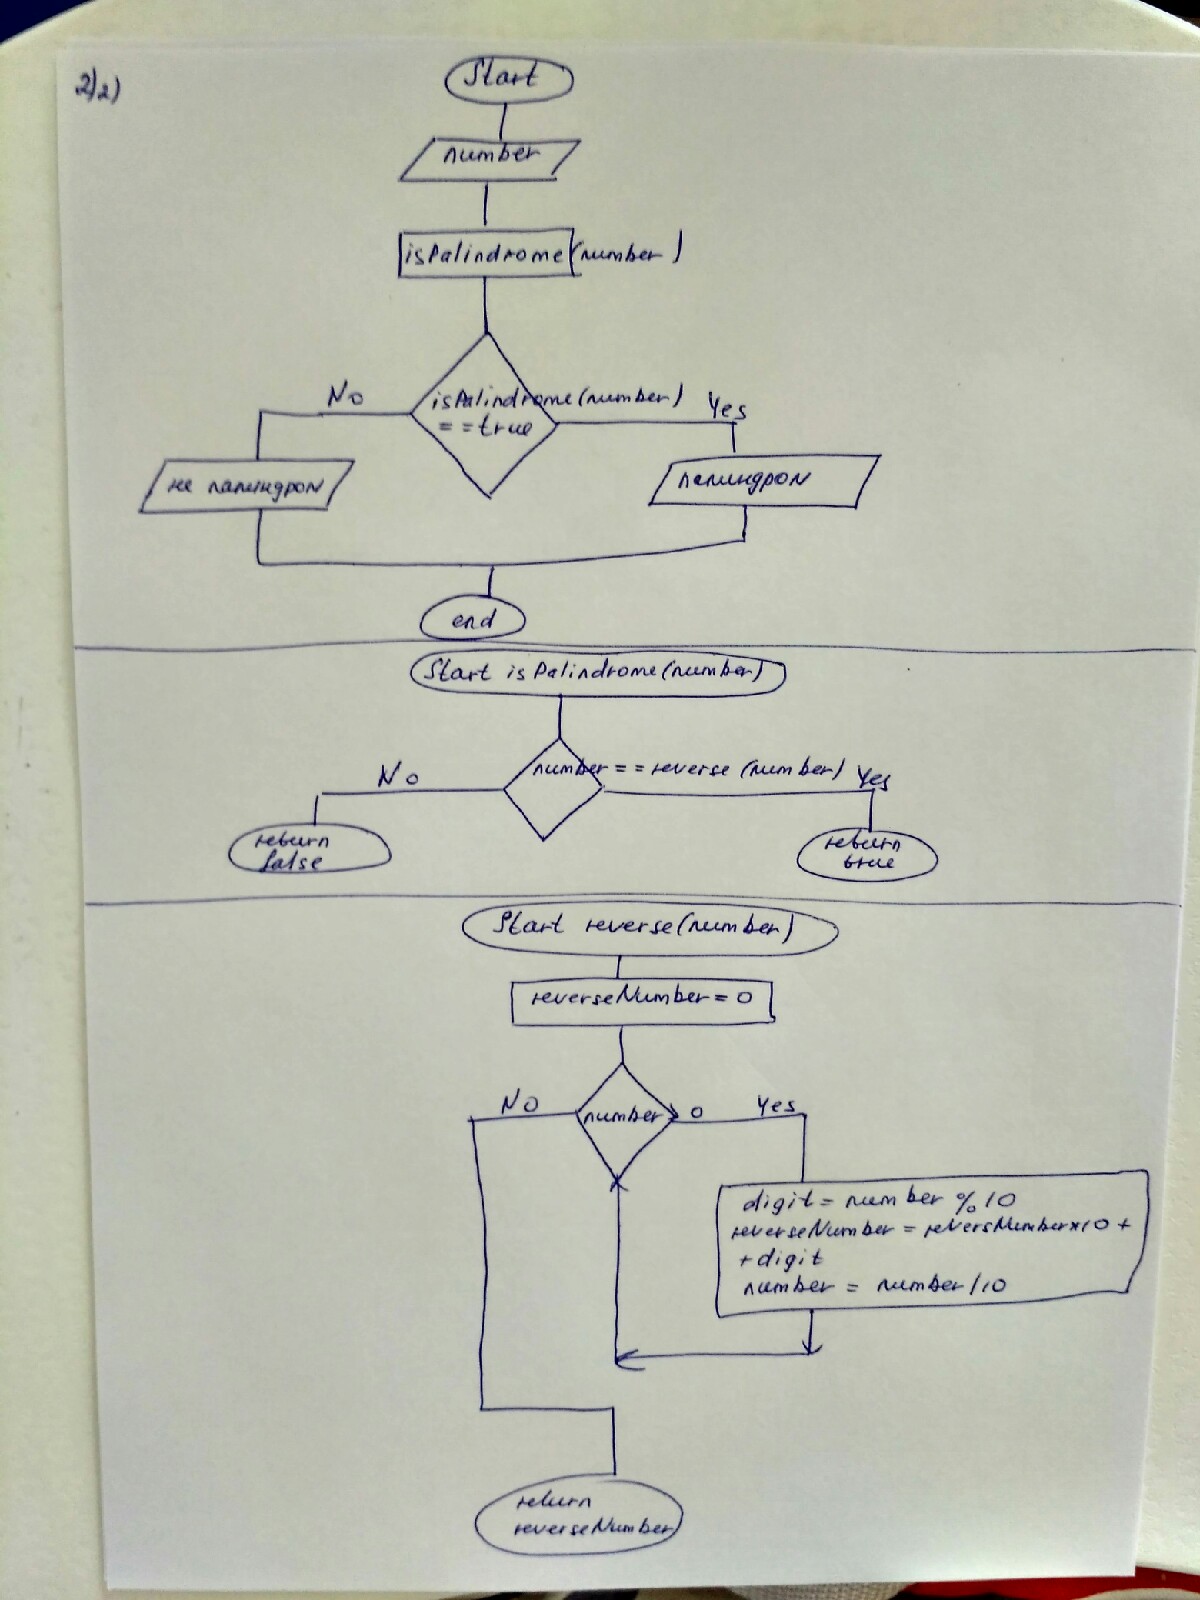 2)2)
Start
number
isPalindrome(number)
No
isPalindrome(number)
Yes
==true
не палиндром
палиндром
end
Start isPalindrome(number)
No
number==reverse(number)
Yes
return
false
return
true
Start reverse(number)
reverseNumber=0
NO
number>0
Yes
digit=number%10
reverseNumber=reversNumber*10+
+digit
number=number/10
return
reverseNumber